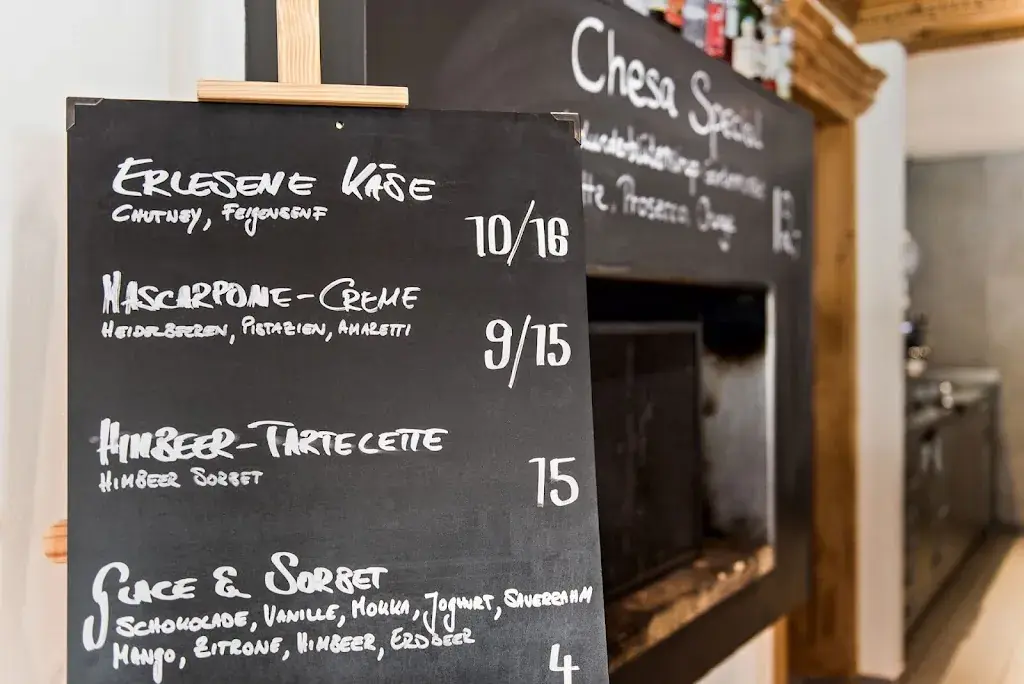 ERLESENE KÄSE
CHUTNEY, FEIGENSENF
10/16
MASCARPONE-CREME
HEIDELBEEREN, PISTAZIEN, AMARETTI
9/15
HIMBEER-TARTELETTE
HIMBEER SORBET
15
GLACE & SORBET
SCHOKOLADE, VANILLE, MOKKA, JOGHURT, SAUERRAHM
MANGO, ZITRONE, HIMBEER, ERDBEER
4
Chesa Special
Prosecco, Orange